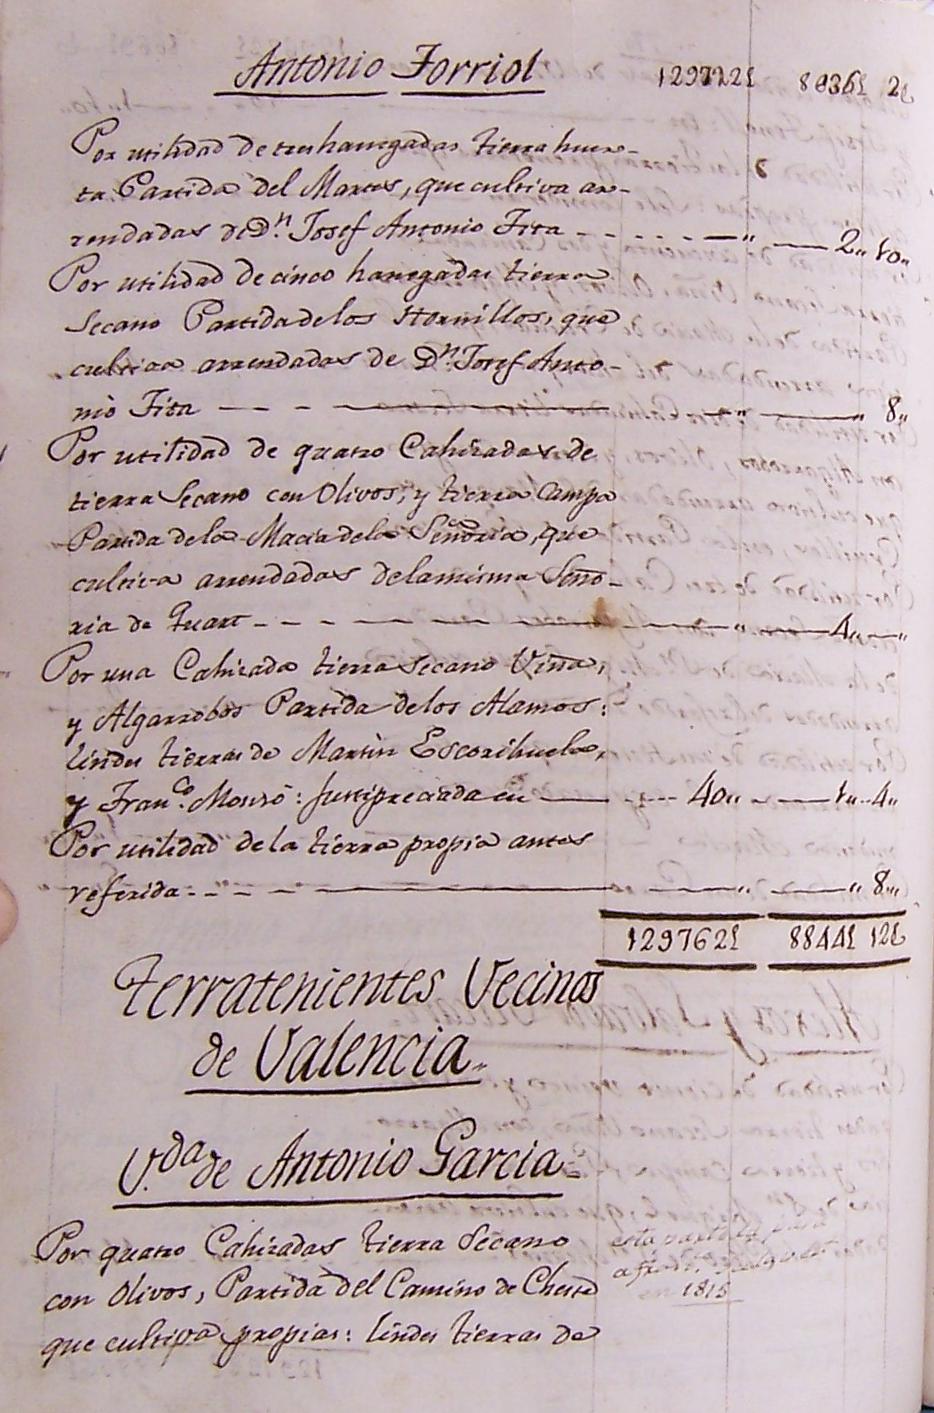 Antonio Forriol 129722£ 8836£ 2£
Por utilidad de tres hanegadas tierra huer-
ta Partida del Marcas, que cultiva ar-
rendadas de Dn. Josef Antonio Fita - - - - - - " — 2„ 10„
Por utilidad de cinco hanegadas tierra
Secano Partida de los Hornillos, que
cultiva arrendadas de Dn. Josef Anto-
nio Fita — - - — " — " 8„
Por utilidad de quatro Cahizadas de
tierra Secano con Olivos, y tierra Campa
Partida de la Macia de la Señoria, que
cultiva arrendadas de la misma Seño-
ria de Quart - - - - - — " — 4„ — "
Por una Cahizada tierra Secano Viña,
y Algarrobos Partida de los Alamos:
lindes tierras de Martin Escorihuela,
y Franco. Monró: Justipreciada en — 40„ — 1„ 4„
Por utilidad de la tierra propia antes
referida: - - - — " — " 8„
129762£ 8844£ 12£
Terratenientes Vecinos
de Valencia
V.da de Antonio Garcia
Por quatro Cahizadas tierra Secano
con Olivos, Partida del Camino de Cheste
que cultiva propias: lindes tierras de
esta partida pasa
en 1815